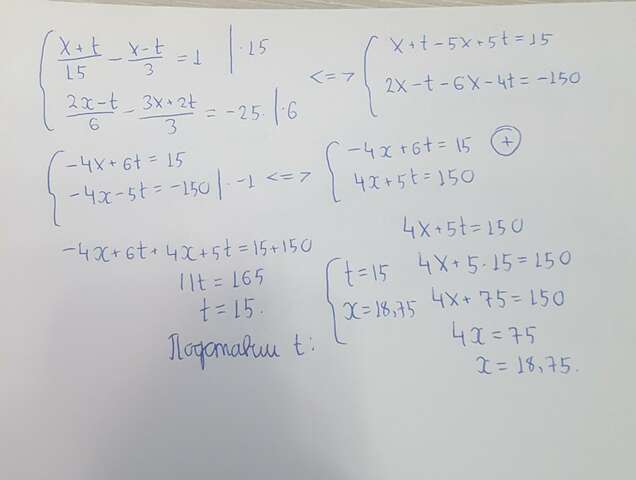 (x+t)/15 - (x-t)/3 = 1 | ·15
(2x-t)/6 - (3x+2t)/3 = -25. | ·6
<=> x+t-5x+5t=15
2x-t-6x-4t=-150
-4x+6t=15
-4x-5t=-150 | ·-1 <=>
-4x+6t=15 (+)
4x+5t=150
-4x+6t+4x+5t=15+150
11t=165
t=15.
Подставим t:
4x+5t=150
4x+5·15=150
4x+75=150
4x=75
x=18,75.
t=15
x=18,75